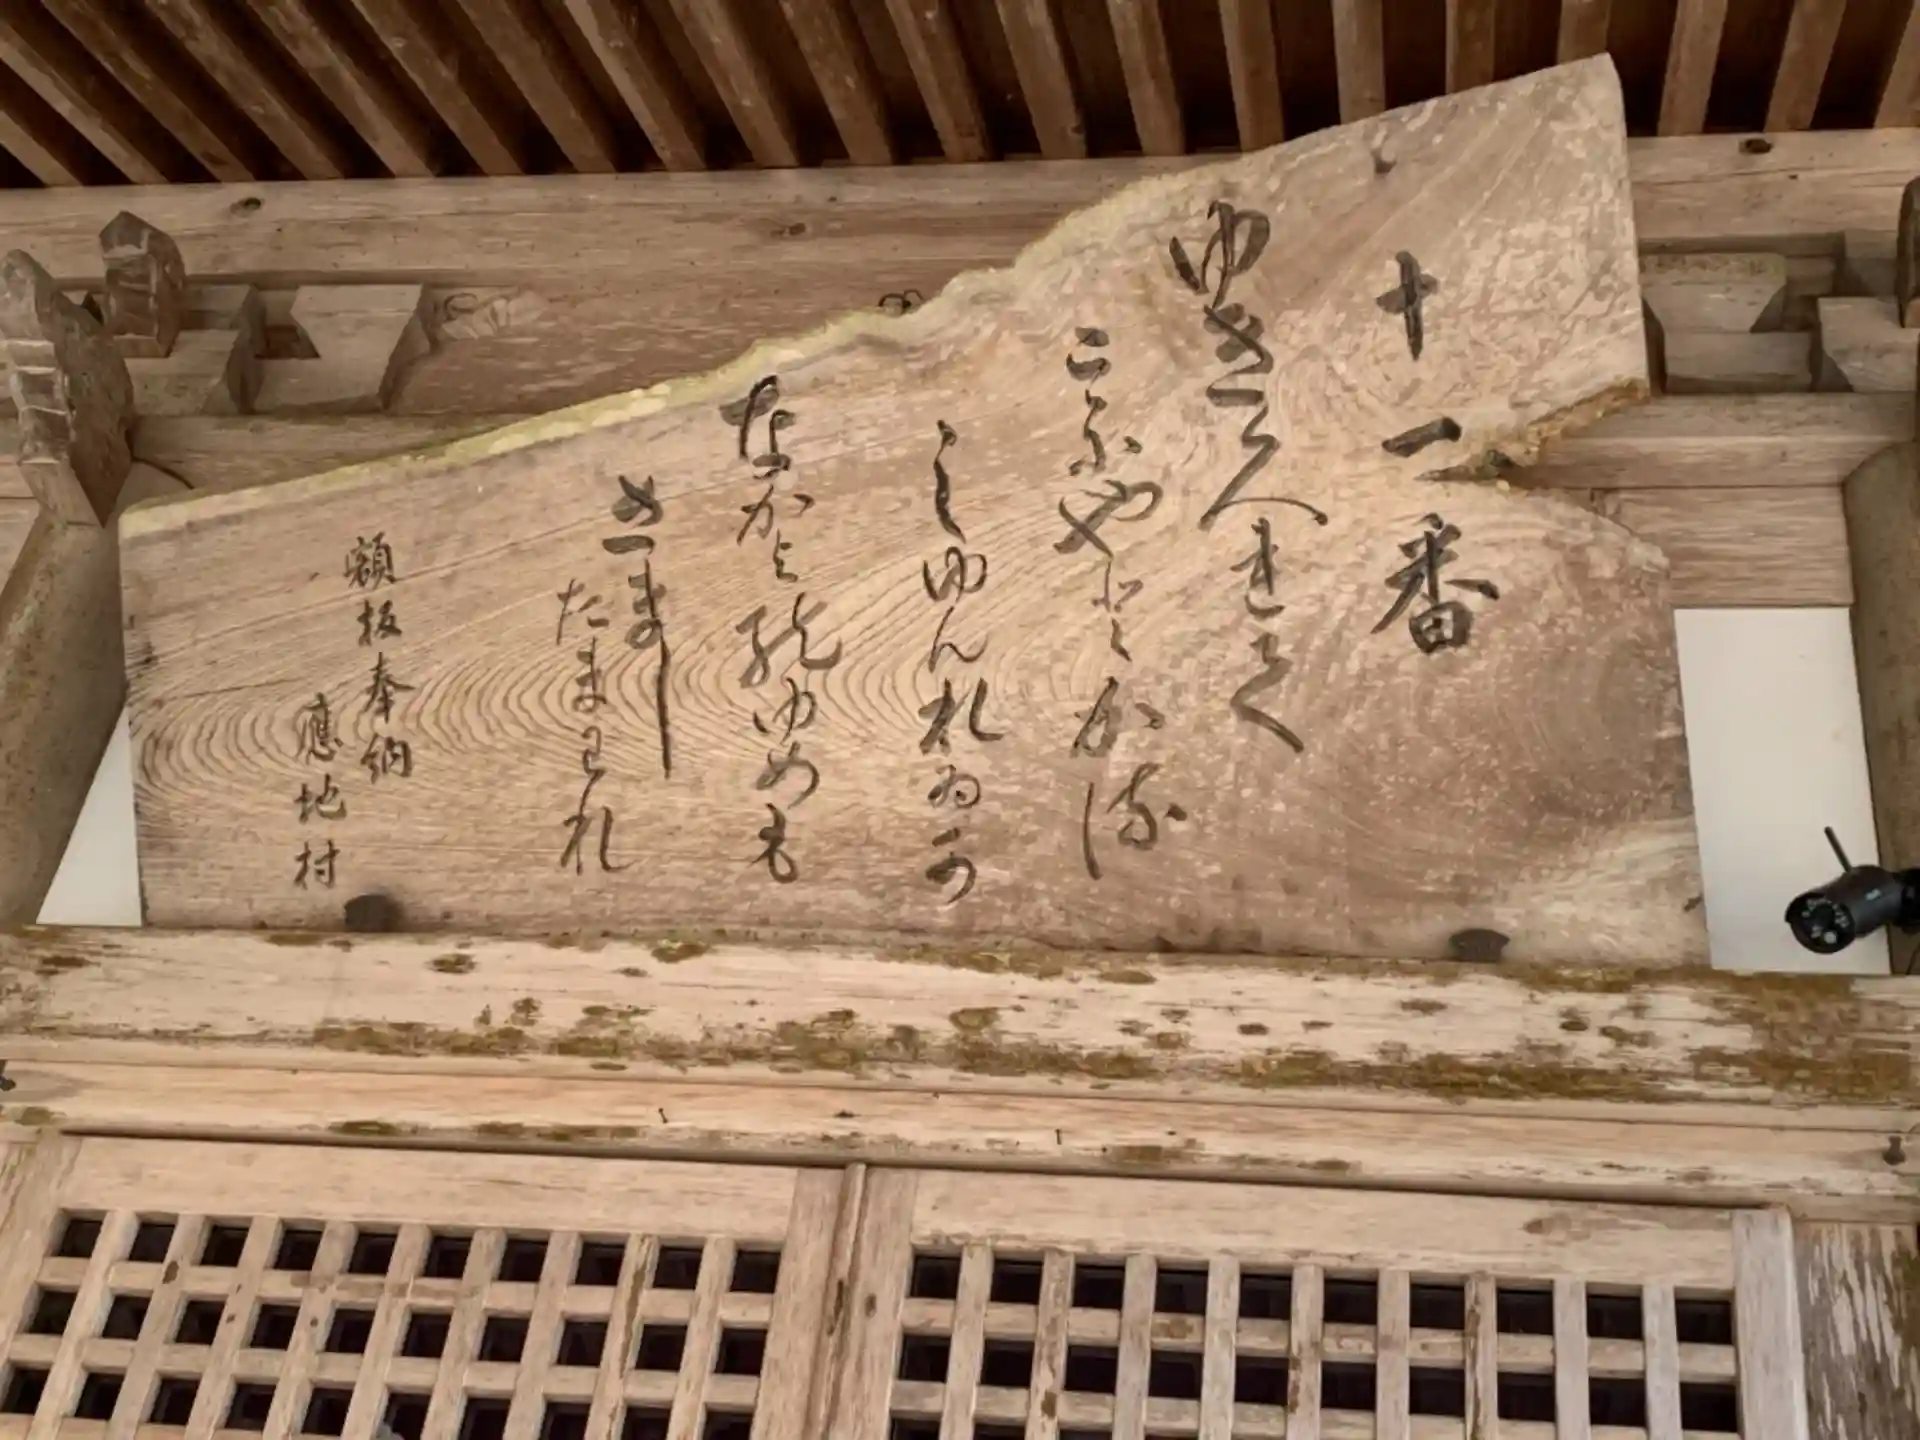 十一番
ゆきくれて
こふやとかる
しゆんれゐか
なかよ能ゆめも
さまし
たまわれ
額板奉納
應地村